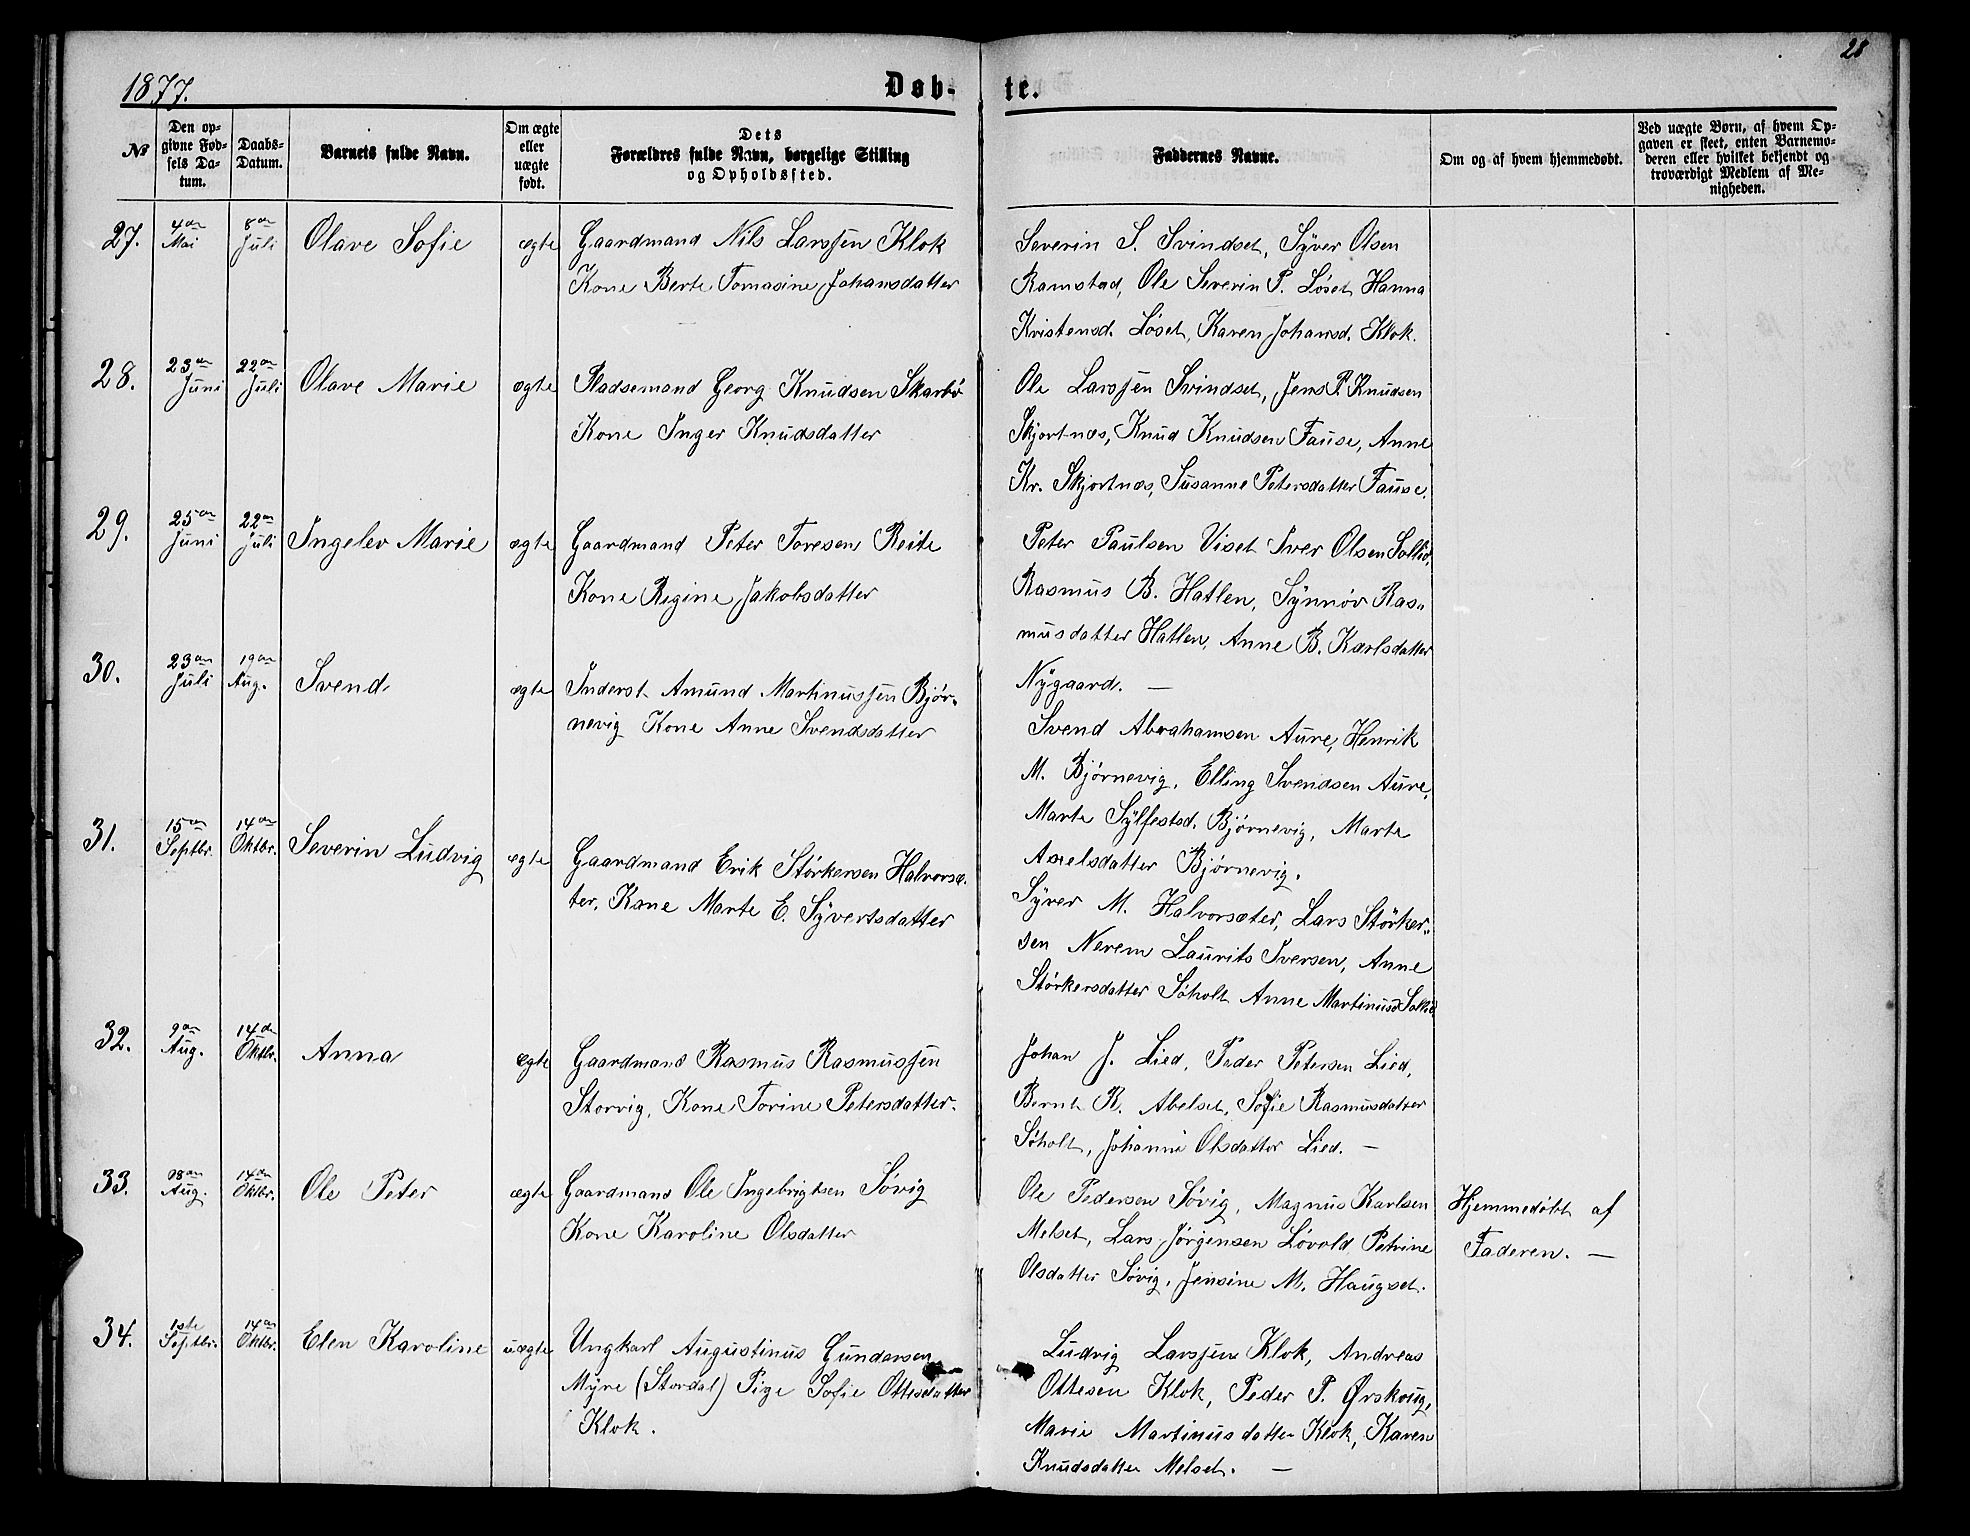 28
1877.
Døb-
te.
№
Den op-
givne Fød-
sels Da-
tum.
Daabs-
Datum.
Barnets fulde Navn.
Om ægte
eller
uægte
født.
Dets
Forældres fulde Navn, borgelige Stilling
og Opholdssted.
Faddernes Navne.
Om og af hvem hjemmedøbt.
Ved uægte Børn, af hvem Op-
gaven er skeet, enten Barnemo-
deren eller hvilket bekjendt og
troværdigt Medlem af Me-
nigheden.
27.
4de
Mai
8de
Juli
Olave Sofie
ægte
Gaardmand Nils Larssen Klok
Kone Berte Tomasine Johansdatter
Severin S. Svindset, Syver Olsen
Ramstad, Ole Severin P. Løset Hanna
Kristensd. Løset, Karen Johansd. Klok.
28.
23de
Juni
22de
Juli
Olave Marie
ægte
Pladsemand Georg Knudsen Skarbø
Kone Inger Knudsdatter
Ole Larssen Svindset, Jens P. Knudsen
Skjortnæs, Knud Knudsen Fause, Anne
Kr. Skjortnæs, Susanne Petersdatter Fause.
29.
25de
Juni
22de
Juli
Ingelev Marie
ægte
Gaardmand Peter Toresen Reite
Kone Regine Jakobsdatter
Peter Paulsen Viset Iver Olsen Sollid,
Rasmus B. Hatlen, Synnøv Ras-
musdatter Hatlen, Anne B. Karlsdatter
Nygaard. —
30.
23de
Juli
19de
Aug.
Svend
ægte
Inderst Amund Martinussen Bjør-
nevig Kone Anne Svendsdatter
Svend Abrahamsen Aure, Henrik
M. Bjørnevig, Elling Svendsen Aure,
Marte Sylfestsd. Bjørnevig, Marte
Axelsdatter Bjørnevig.
31.
15de
Septbr.
14de
Oktbr.
Severin Ludvig
ægte
Gaardmand Erik Størkersen Halvorsæ-
ter, Kone Marte E. Syvertsdatter
Syver M. Halvorsæter, Lars Størker-
sen Nerem Laurits Iversen, Anne
Størkersdatter Søholt Anne Martinusd Sollid
32.
9de
Aug.
14de
Oktbr.
Anna
ægte
Gaardmand Rasmus Rasmussen
Storvig, Kone Torine Petersdatter.
Johan J. Lied, Peder Petersen Lied,
Bernt K. Abelset, Sofie Rasmusdatter
Søholt, Johanne Olsdatter Lied. —
33.
28de
Aug.
14de
Oktbr.
Ole Peter
ægte
Gaardmand Ole Ingebrigtsen Søvig
Kone Karoline Olsdatter
Ole Pedersen Søvig, Magnus Karlsen
Melset, Lars Jørgensen Løvold Petrine
Olsdatter Søvig, Jensine M. Haugset.
Hjemmedøbt af
Faderen. —
34.
1ste
Septbr.
14de
Oktbr.
Elen Karoline
uægte
Ungkarl Augustinus Gundersen
Myre (Stordal) Pige Sofie Ottesdatter
Klok.
Ludvig Larssen Klok, Andreas
Ottesen Klok, Peder P. Ørskoug,
Marie Martinusdatter Klok, Karen
Knudsdatter Melset. —